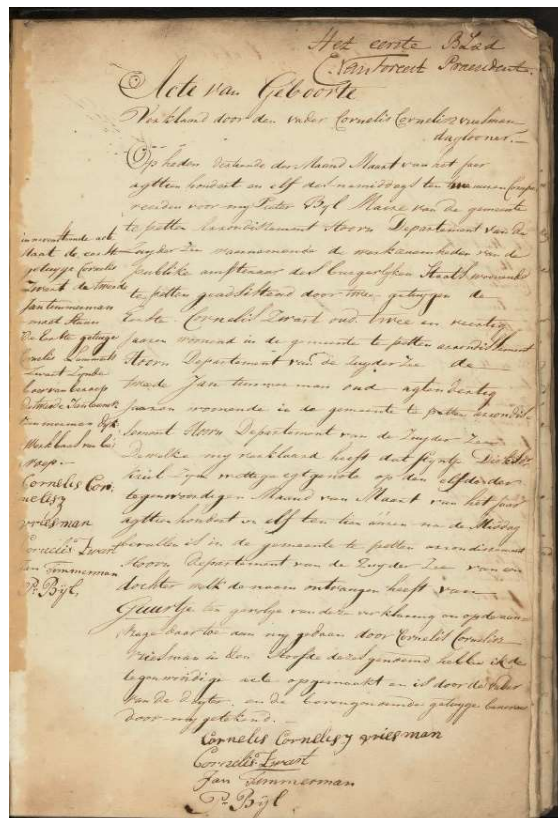 Het eerste Blad
C. van Foreest Praesident
Acte van Geboorte
Verklaard door den vader Cornelis Cornelisz vriesman
daglooner.—
Op heden dertiende der Maand Maart van het jaar
agttien hondert en elf des namiddags ten uuren
voor my Pieter Bijl Maire van de gemeente
te petten arrondissement Hoorn Departement van de
Zuyder Zee waarnemende de werkzaamheden van de
publike amptenaar des burgerlyken Staats
te petten geadsisteerd door twee getuygen de
Eerste Cornelis Zwart oud twee en
jaaren woonend in de gemeente te petten arrondissement
Hoorn Departement van de Zuyder Zee de
tweede Jan timmerman oud agtendertig
jaaren woonende in de gemeente te petten arrondis-
sement Hoorn Departement van de Zuyder Zee
Dewelke my verklaard heeft dat Dirks
Zyn wettige egtgenote op den elfde der
tegenwoordigen Maand van Maart van het jaar
agttien hondert en elf ten tien uuren na de Middag
bevallen is in de gemeente te petten arrondissement
Hoorn Departement van de Zuyder Zee van een
dochter welk de naam ontvangen heeft van
Guurtje ten gevolge van deze verklaring en op de aan-
vrage daar toe aan my gedaan door Cornelis Cornelisz
vriesman in den Hoofde dezes genoemd hebbe ik de
tegenwoordige acte opgemaakt en is door de vader
van de dogter en de bovengenoemde getuyge benevens
door my getekend.—
Cornelis Cornelisz vriesman
Cornelis Zwart
Jan Timmerman
Pr Bijl
in nevenstaande acte
staat de eerste
getuyge Cornelis
Zwart de tweede
Jan timmerman
moet staan
De Eerste getuyge
Cornelis
Zwart Zynde
van beroep
de tweede Jan
timmerman
van be
roep.
Cornelis Cor
nelisz
vriesman
Cornelis Zwart
Jan Timmerman
Pr Bijl